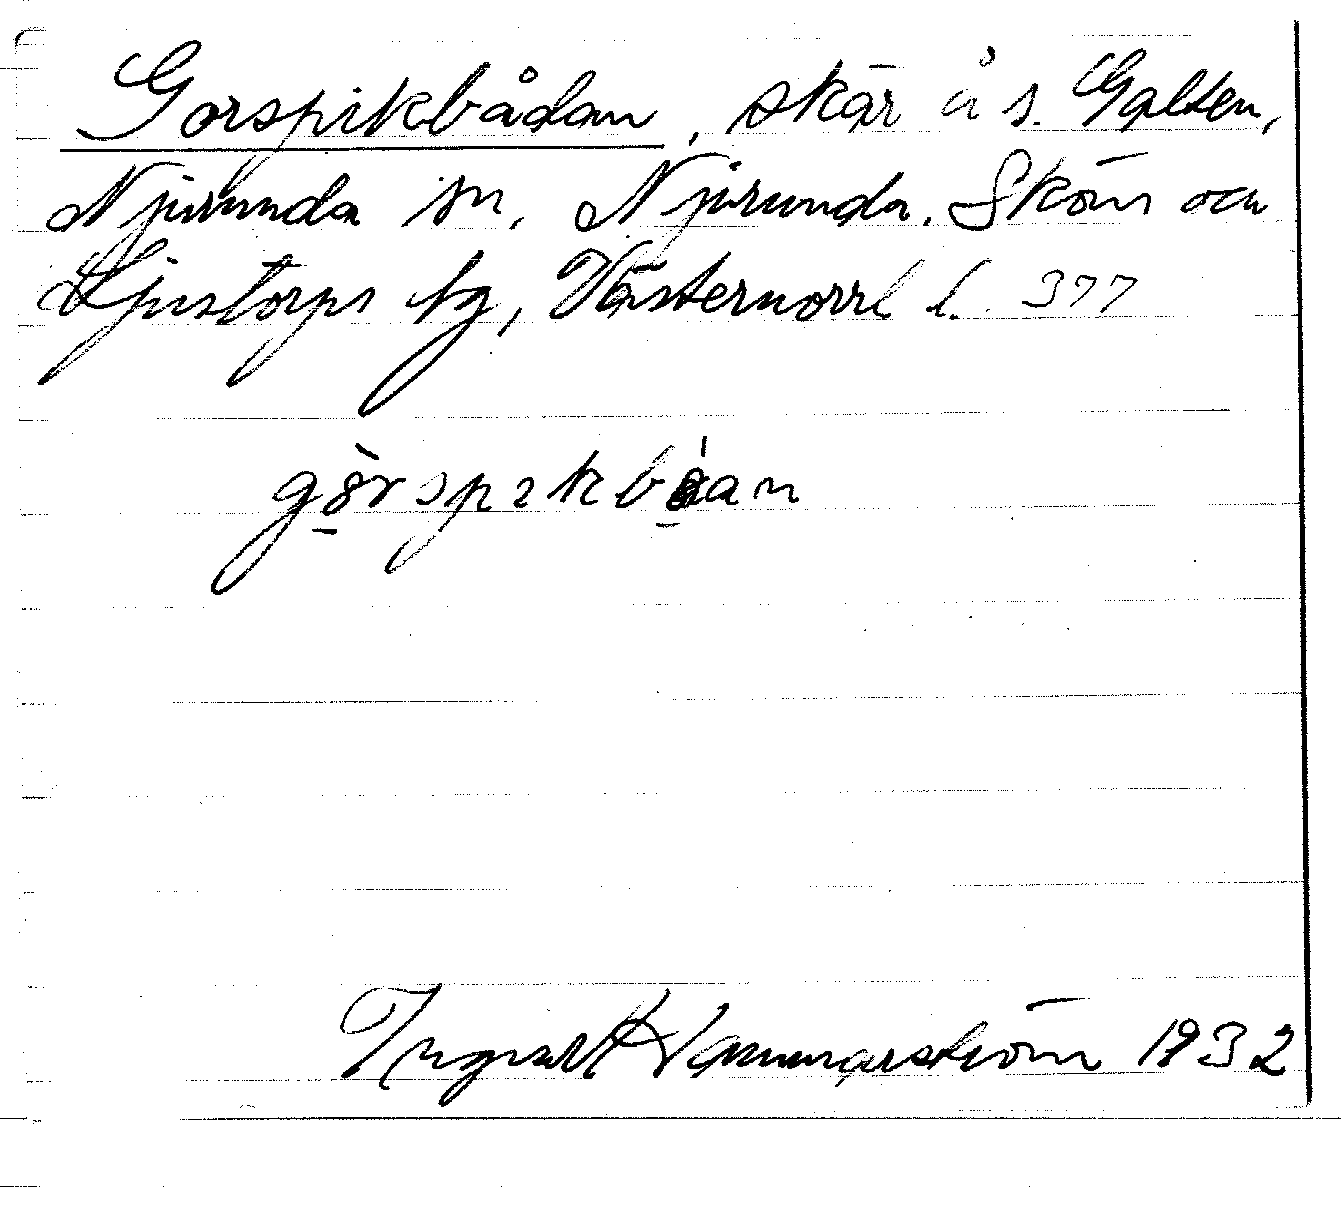 Gorspikbådan, skär å s. Galten,
Njurunda sn, Njurunda, Sköns och
Ljustorps tg, Västernorrl l. 377
görspikbåan
Ingvalf Hammarström 1932